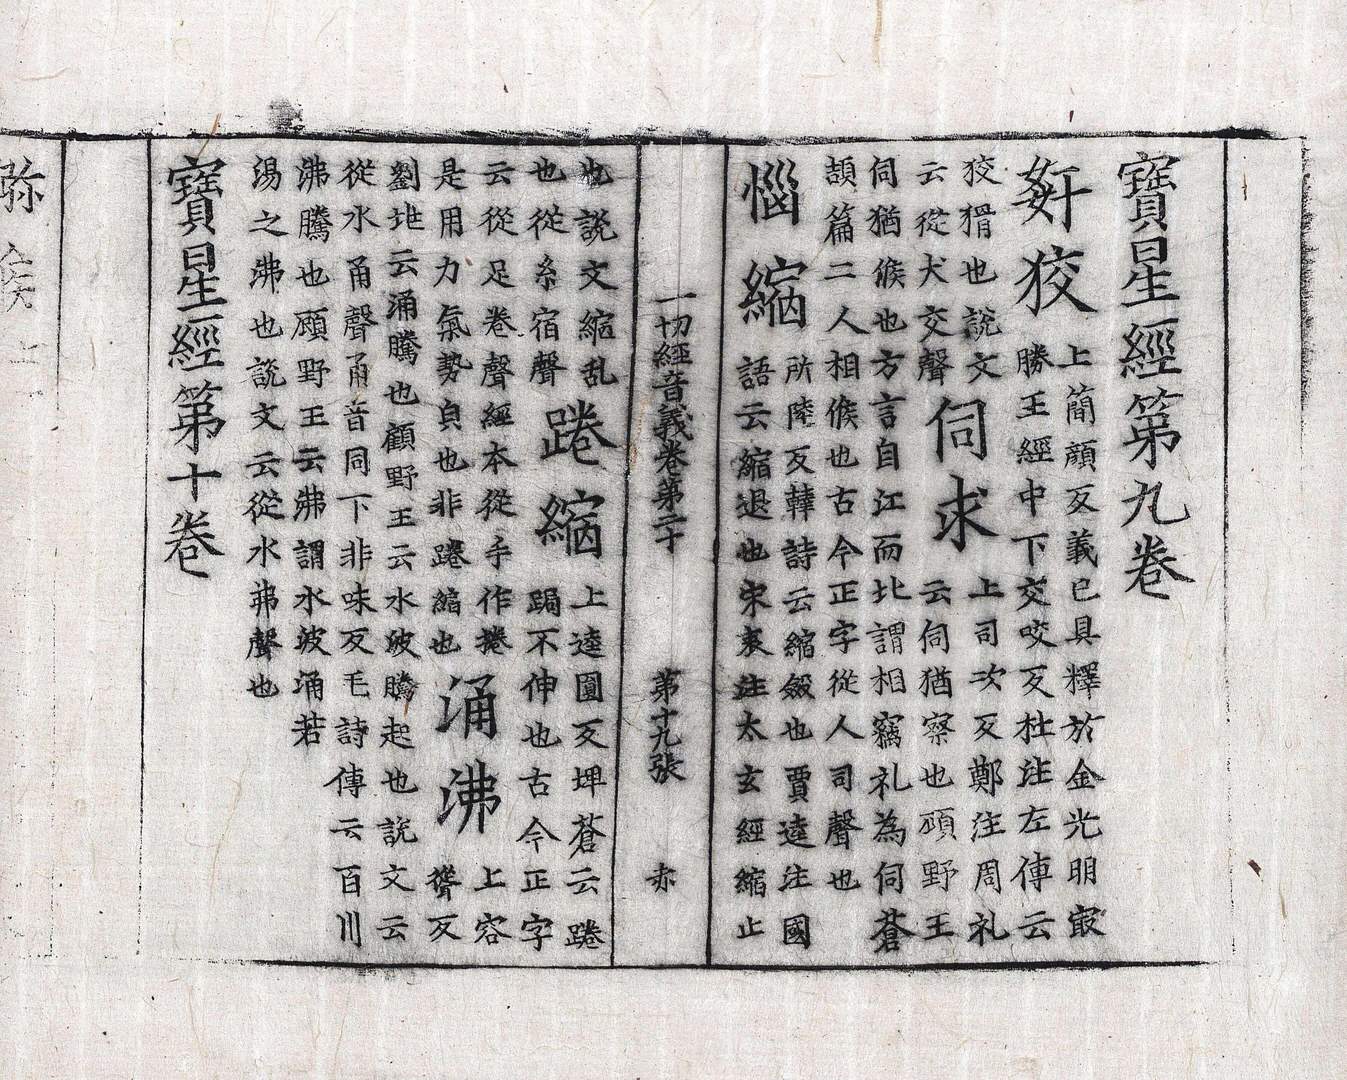 寶星經第九卷
姧狡
上簡顔反義已具釋於金光明㝡
勝王經中下交咬反杜注左傳云
狡猾也說文
云從犬交聲
伺求
上司次反鄭注周礼
云伺猶察也顧野王
伺猶候也方言自江而北謂相竊礼為伺蒼
頡篇二人相候也古今正字從人司聲也
惱縮
所陸反韓詩云縮斂也賈逵注國
語云縮退也宋衷注太玄經縮止
一切經音義卷第二十　第十九張　赤
也說文縮乱
也從糸宿聲
踡縮
上逵圓反埤蒼云踡
跼不伸也古今正字
云從足卷聲經本從手作捲
是用力氣勢皃也非踡縮也
涌沸
上容
聳反
劉兆云涌騰也顧野王云水波騰起也說文云
從水甬聲甬音同下非味反毛詩傳云百川
沸騰也顧野王云沸謂水波涌若
湯之沸也說文云從水弗聲也
寶星經第十卷